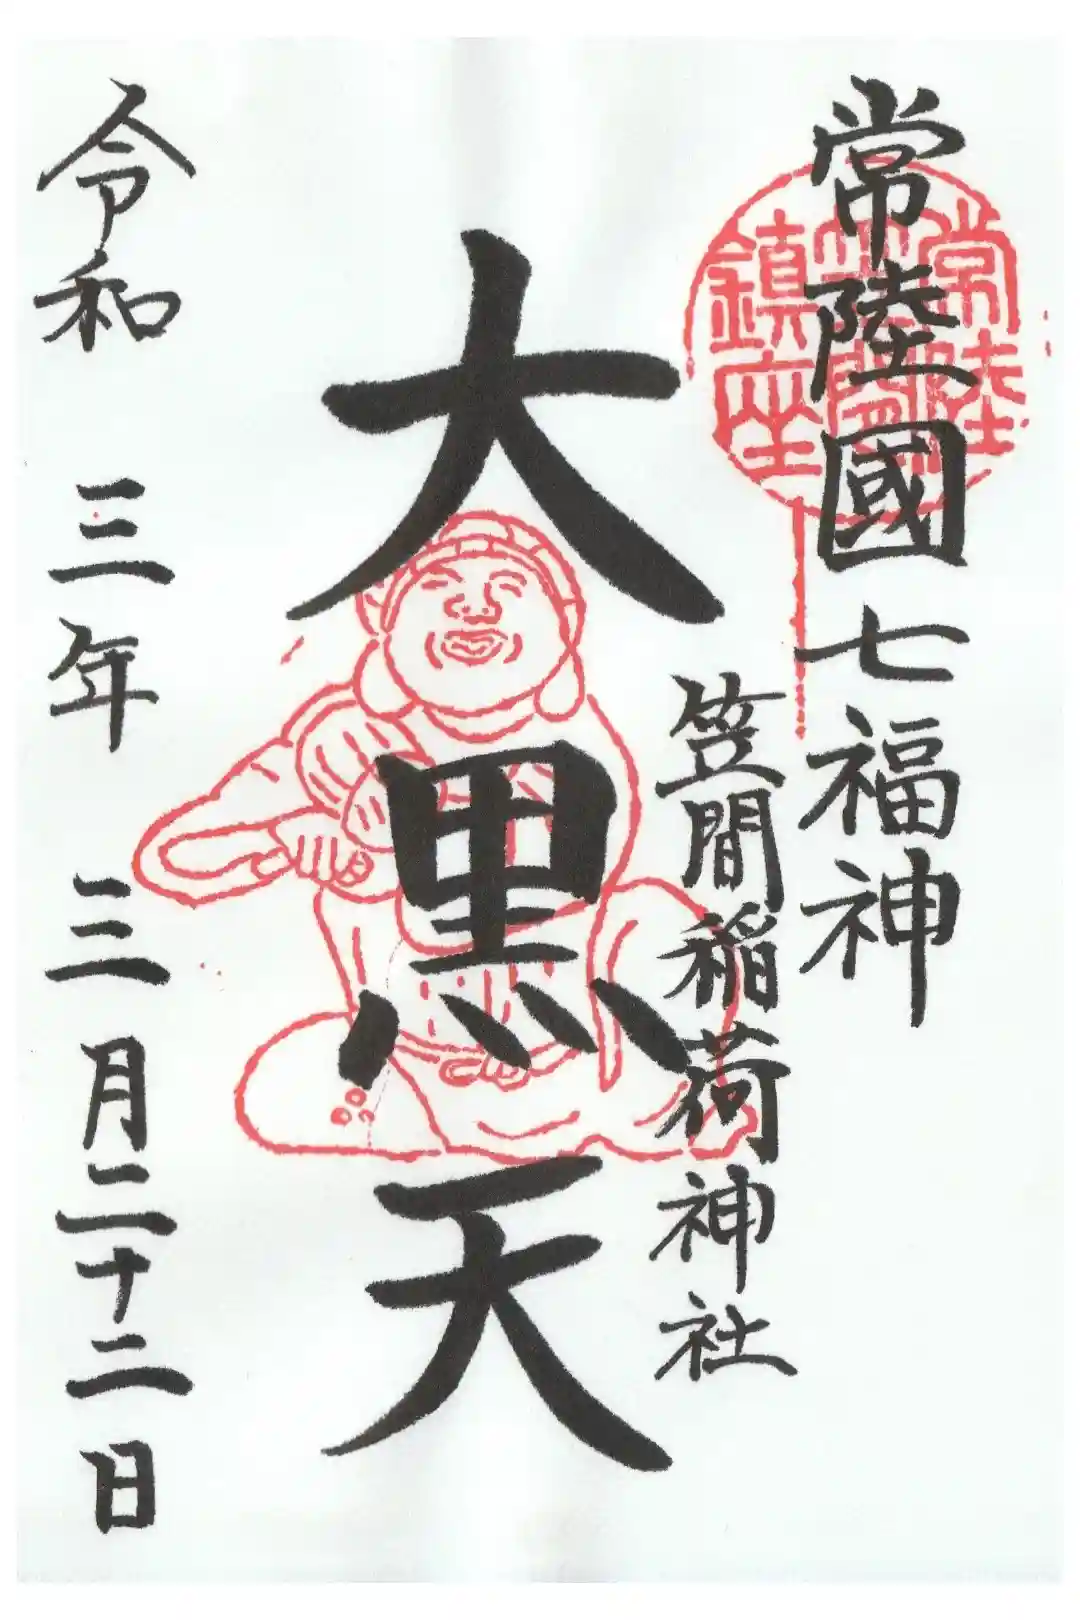 常陸國七福神
笠間稲荷神社
大黒天
令和三年三月二十二日
常陸
鎮座